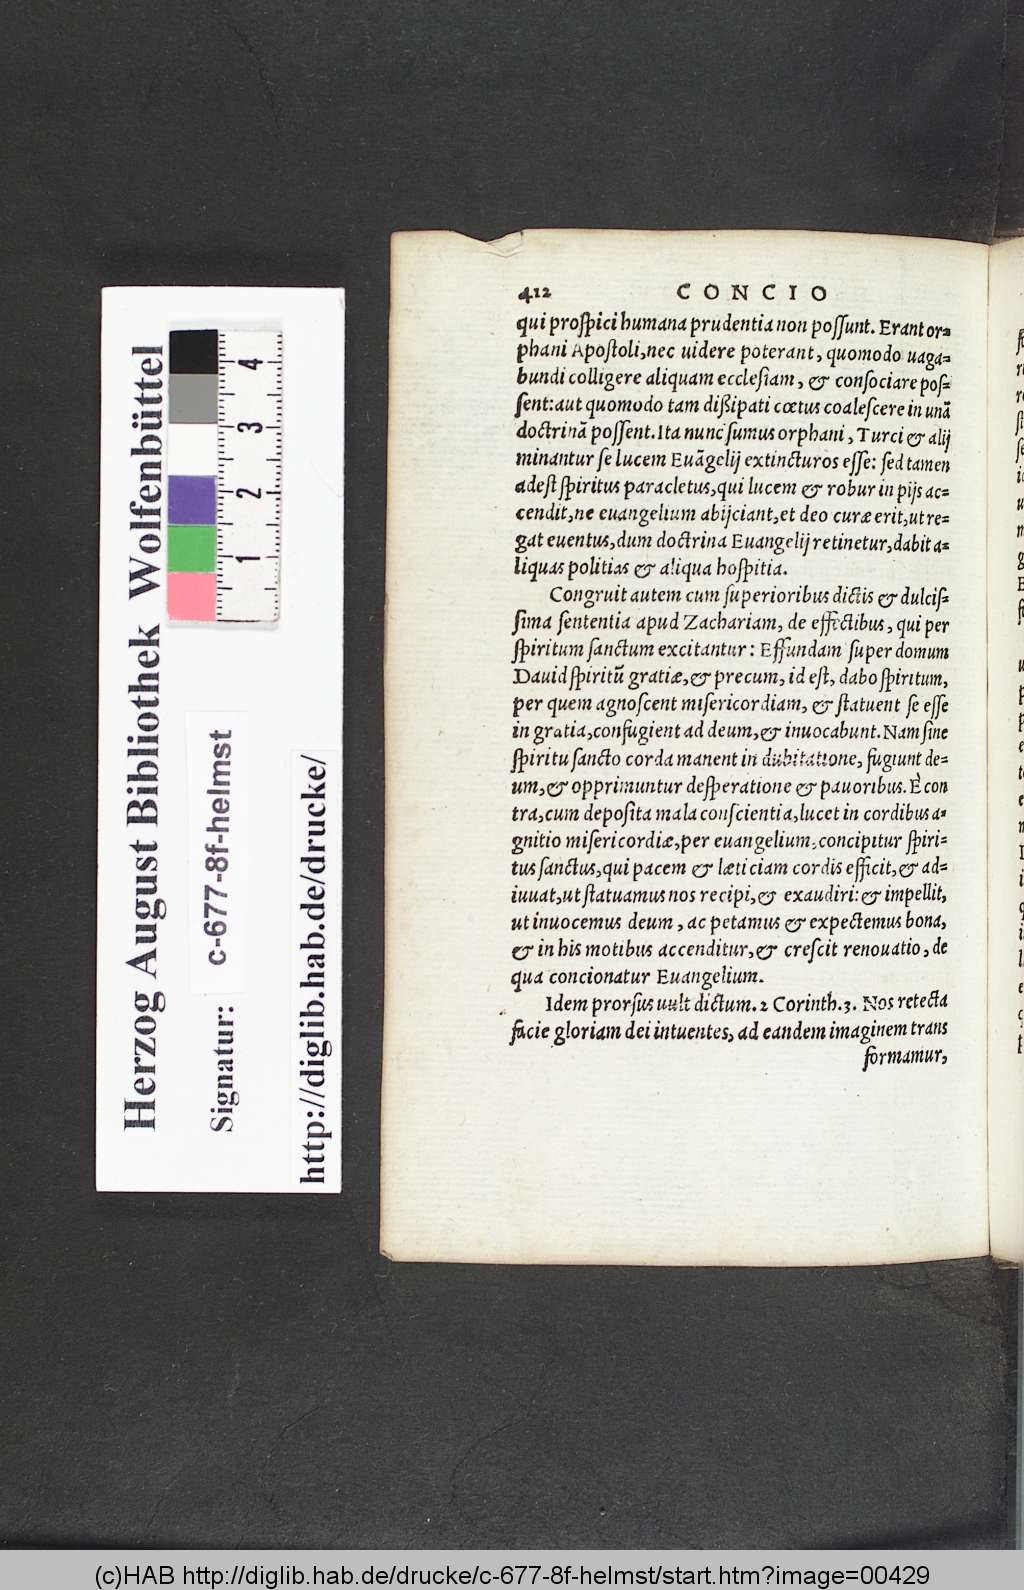 412 CONCIO
qui prospici humana prudentia non possunt. Erant or=
phani Apostoli, nec uidere poterant, quomodo uaga=
bundi colligere aliquam ecclesiam, & consociare pos=
sent: aut quomodo tam dißipati cœtus coalescere in unã
doctrinã possent. Ita nunc sumus orphani, Turci & alij
minantur se lucem Euãgelij extincturos esse: sed tamen
adest spiritus paracletus, qui lucem & robur in pijs ac=
cendit, ne euangelium abijciant, et deo curæ erit, ut re=
gat euentus, dum doctrina Euangelij retinetur, dabit a=
liquas politias & aliqua hospitia.
Congruit autem cum superioribus dictis & dulcis=
sima sententia apud Zachariam, de effectibus, qui per
spiritum sanctum excitantur: Effundam super domum
Dauid spiritũ gratiæ, & precum, id est, dabo spiritum,
per quem agnoscent misericordiam, & statuent se esse
in gratia, confugient ad deum, & inuocabunt. Nam sine
spiritu sancto corda manent in dubitatione, fugiunt de=
um, & opprimuntur desperatione & pauoribus. È con
tra, cum deposita mala conscientia, lucet in cordibus a=
gnitio misericordiæ, per euangelium, concipitur spiri=
tus sanctus, qui pacem & læticiam cordis efficit, & ad=
iuuat, ut statuamus nos recipi, & exaudiri: & impellit,
ut inuocemus deum, ac petamus & expectemus bona,
& in his motibus accenditur, & crescit renouatio, de
qua concionatur Euangelium.
Idem prorsus uult dictum. 2 Corinth. 3. Nos retecta
facie gloriam dei intuentes, ad eandem imaginem trans
formamur,
Herzog August Bibliothek Wolfenbüttel
Signatur: c-677-8f-helmst
http://diglib.hab.de/drucke/
1 2 3 4
(c)HAB http://diglib.hab.de/drucke/c-677-8f-helmst/start.htm?image=00429